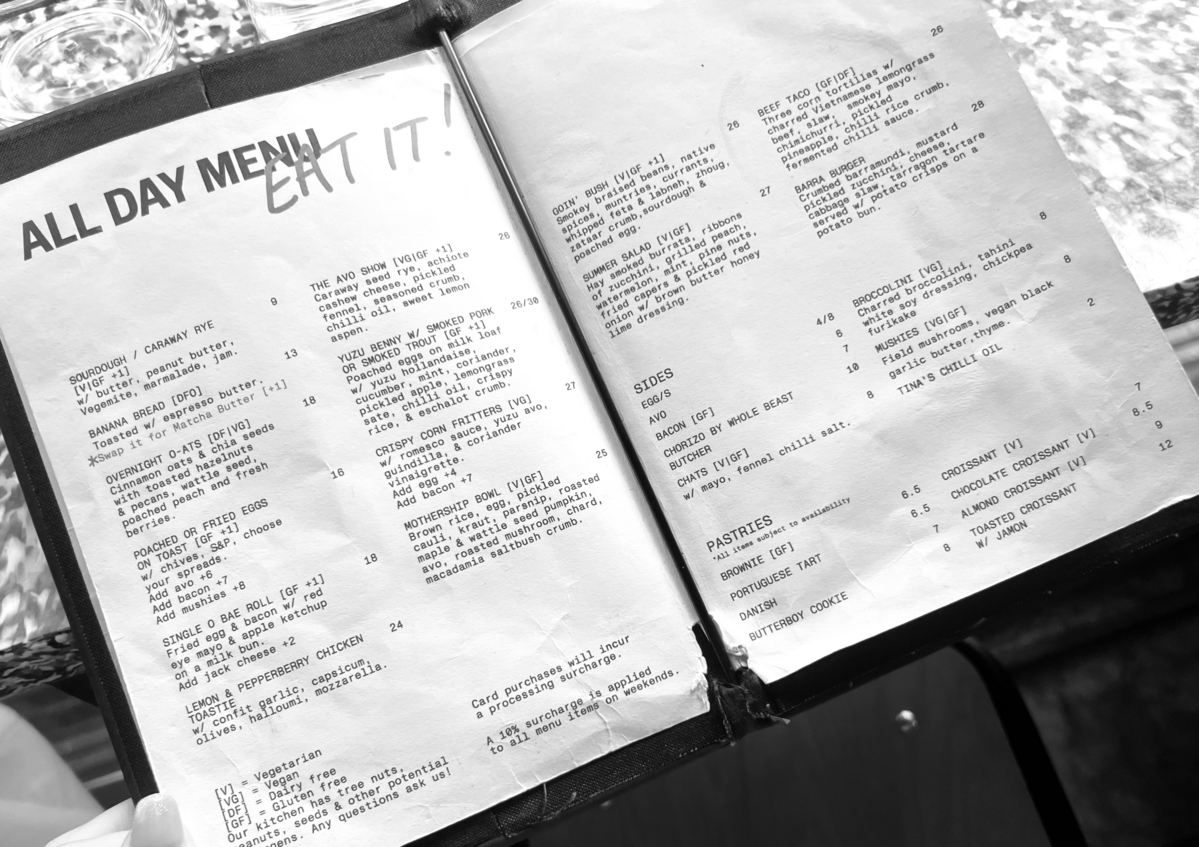 ALL DAY MENU
EAT IT!
9
SOURDOUGH / CARAWAY RYE
[V|GF +1]
w/ butter, peanut butter,
Vegemite, marmalade, jam.
13
BANANA BREAD [DFO]
Toasted w/ espresso butter.
*Swap it for Matcha Butter [+1]
18
OVERNIGHT O-ATS [DF|VG]
Cinnamon oats & chia seeds
with toasted hazelnuts
& pecans, wattle seed,
poached peach and fresh
berries.
16
POACHED OR FRIED EGGS
ON TOAST [GF +1]
w/ chives, S&P, choose
your spreads.
Add avo +6
Add bacon +7
Add mushies +8
18
SINGLE O BAE ROLL [GF +1]
Fried egg & bacon w/ red
eye mayo & apple ketchup
on a milk bun.
Add jack cheese +2
24
LEMON & PEPPERBERRY CHICKEN
TOASTIE
w/ confit garlic, capsicum,
olives, halloumi, mozzarella.
[V] = Vegetarian
[VG] = Vegan
[DF] = Dairy free
[GF] = Gluten free
Our kitchen has tree nuts,
peanuts, seeds & other potential
Any questions ask us!
26
THE AVO SHOW [VG|GF +1]
Caraway seed rye, achiote
cashew cheese, pickled
fennel, seasoned crumb,
chilli oil, sweet lemon
aspen.
26/30
YUZU BENNY W/ SMOKED PORK
OR SMOKED TROUT [GF +1]
Poached eggs on milk loaf
w/ yuzu hollandaise,
cucumber, mint, coriander,
pickled apple, lemongrass
sate, chilli oil, crispy
rice, & eschalot crumb.
27
CRISPY CORN FRITTERS [VG]
w/ romesco sauce, yuzu avo,
guindilla, & coriander
vinaigrette.
Add egg +4
Add bacon +7
25
MOTHERSHIP BOWL [V|GF]
Brown rice, egg, pickled
cauli, kraut, parsnip, roasted
maple & wattle seed pumpkin,
avo, roasted mushroom, chard,
macadamia saltbush crumb.
Card purchases will incur
a processing surcharge.
A 10% surcharge is applied
to all menu items on weekends.
26
GOIN' BUSH [V|GF +1]
Smokey braised beans, native
spices, muntries, currants,
whipped feta & labneh, zhoug,
zataar crumb,sourdough &
poached egg.
27
SUMMER SALAD [V|GF]
Hay smoked burrata, ribbons
of zucchini, grilled peach,
watermelon, mint, pine nuts,
fried capers & pickled red
onion w/ brown butter honey
lime dressing.
26
BEEF TACO [GF|DF]
Three corn tortillas w/
charred Vietnamese lemongrass
beef, slaw, smokey mayo,
chimichurri, pickled
pineapple, chilli rice crumb,
fermented chilli sauce.
28
BARRA BURGER
Crumbed barramundi, mustard
pickled zucchini, cheese,
cabbage slaw, tarragon tartare
served w/ potato crisps on a
potato bun.
SIDES
EGG/S 4/8
AVO 6
BACON [GF] 7
CHORIZO BY WHOLE BEAST 10
BUTCHER
CHATS [V|GF] 8
w/ mayo, fennel chilli salt.
BROCCOLINI [VG] 8
Charred broccolini, tahini
white soy dressing, chickpea
furikake
MUSHIES [VG|GF] 8
Field mushrooms, vegan black
garlic butter,thyme.
TINA'S CHILLI OIL 2
PASTRIES
*All items subject to availability
BROWNIE [GF] 6.5
PORTUGUESE TART 6.5
DANISH 7
BUTTERBOY COOKIE 8
CROISSANT [V] 7
CHOCOLATE CROISSANT [V] 8.5
ALMOND CROISSANT [V] 9
TOASTED CROISSANT 12
W/ JAMON